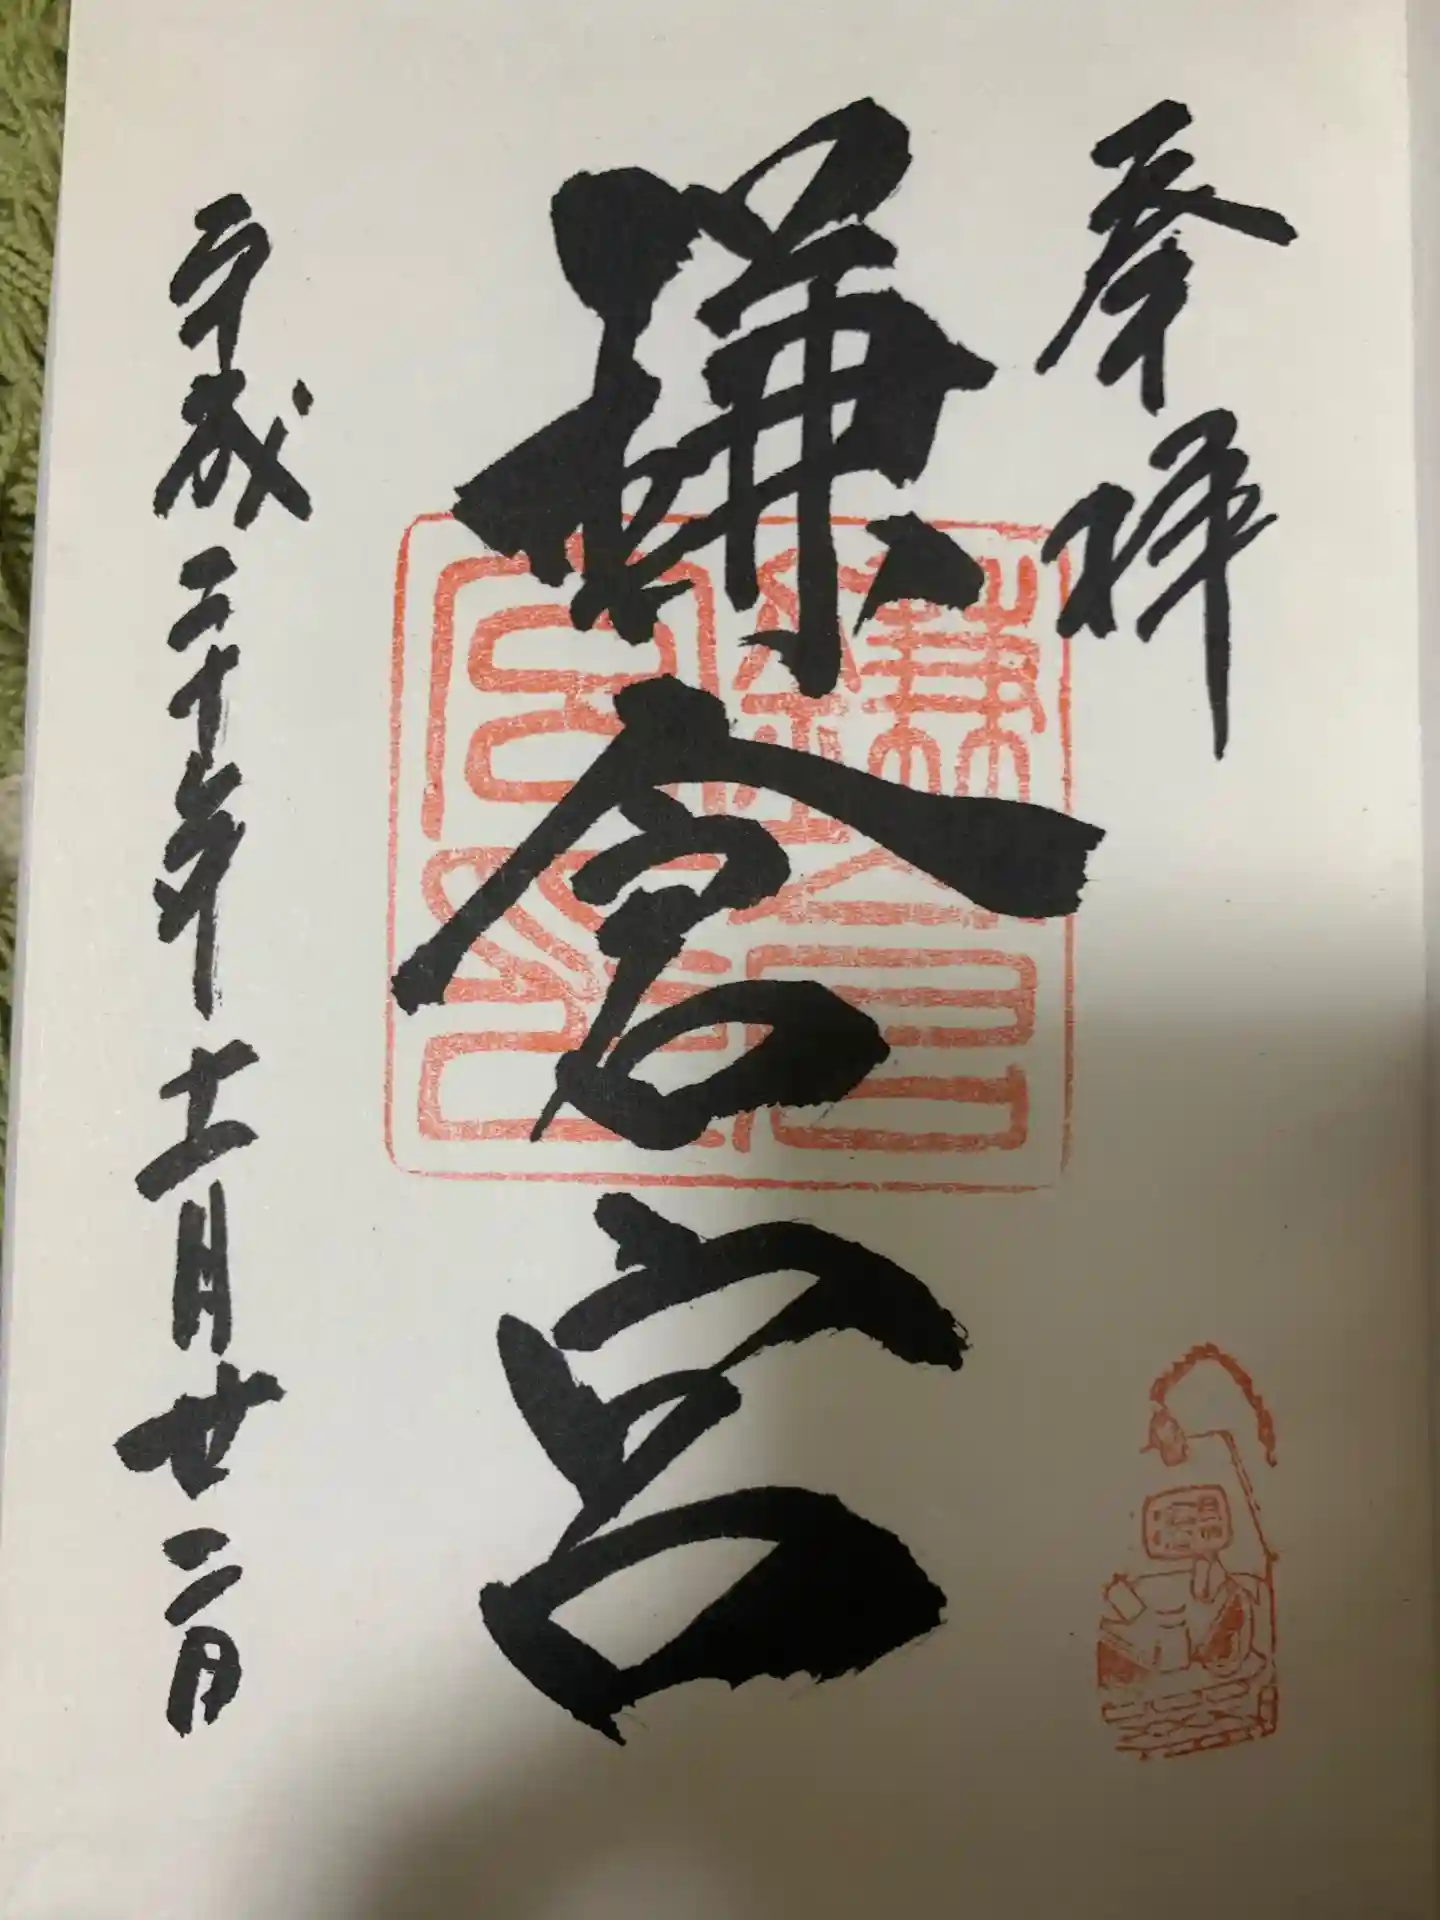 奉拝
鎌倉宮
鎌倉宮印
平成二十年十一月廿二日